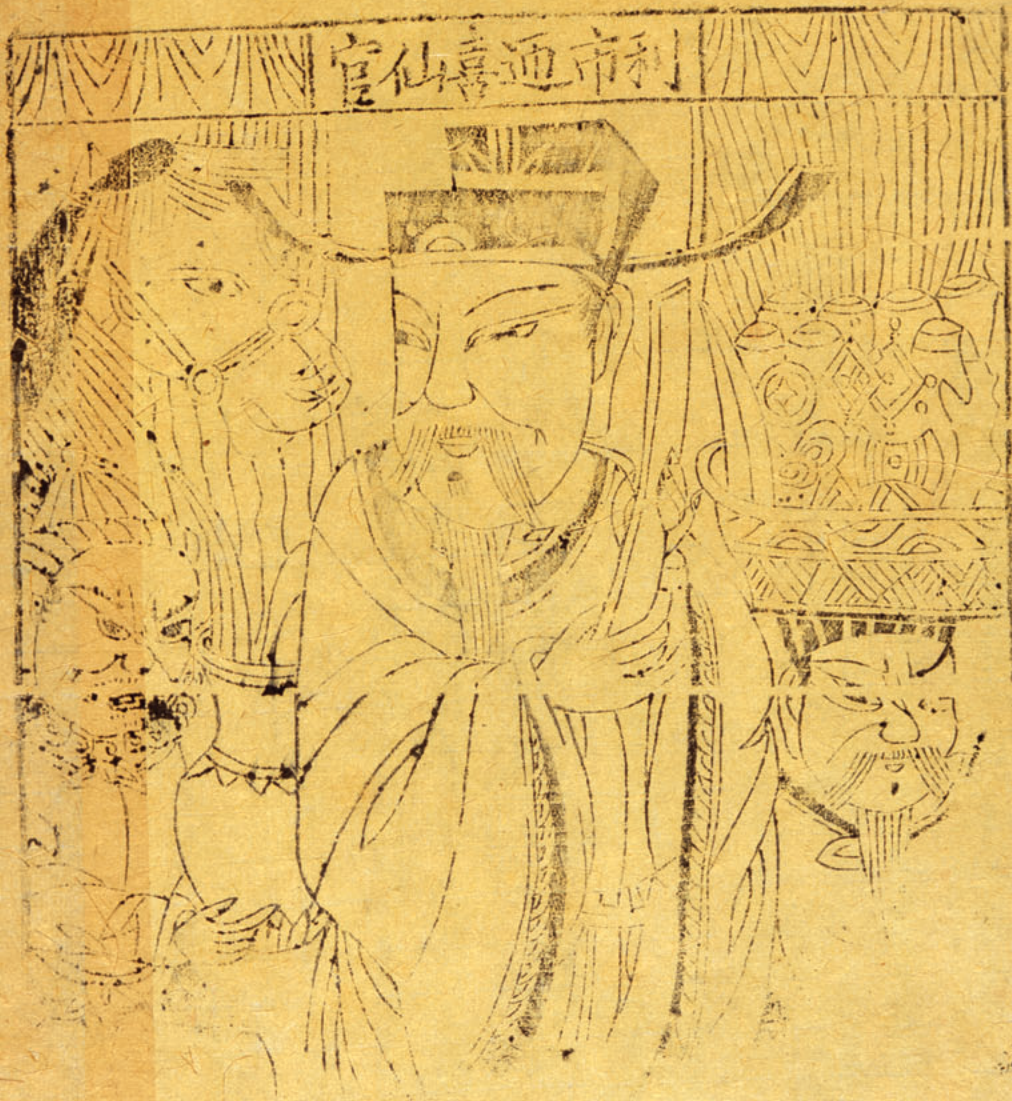 利市迎喜仙官